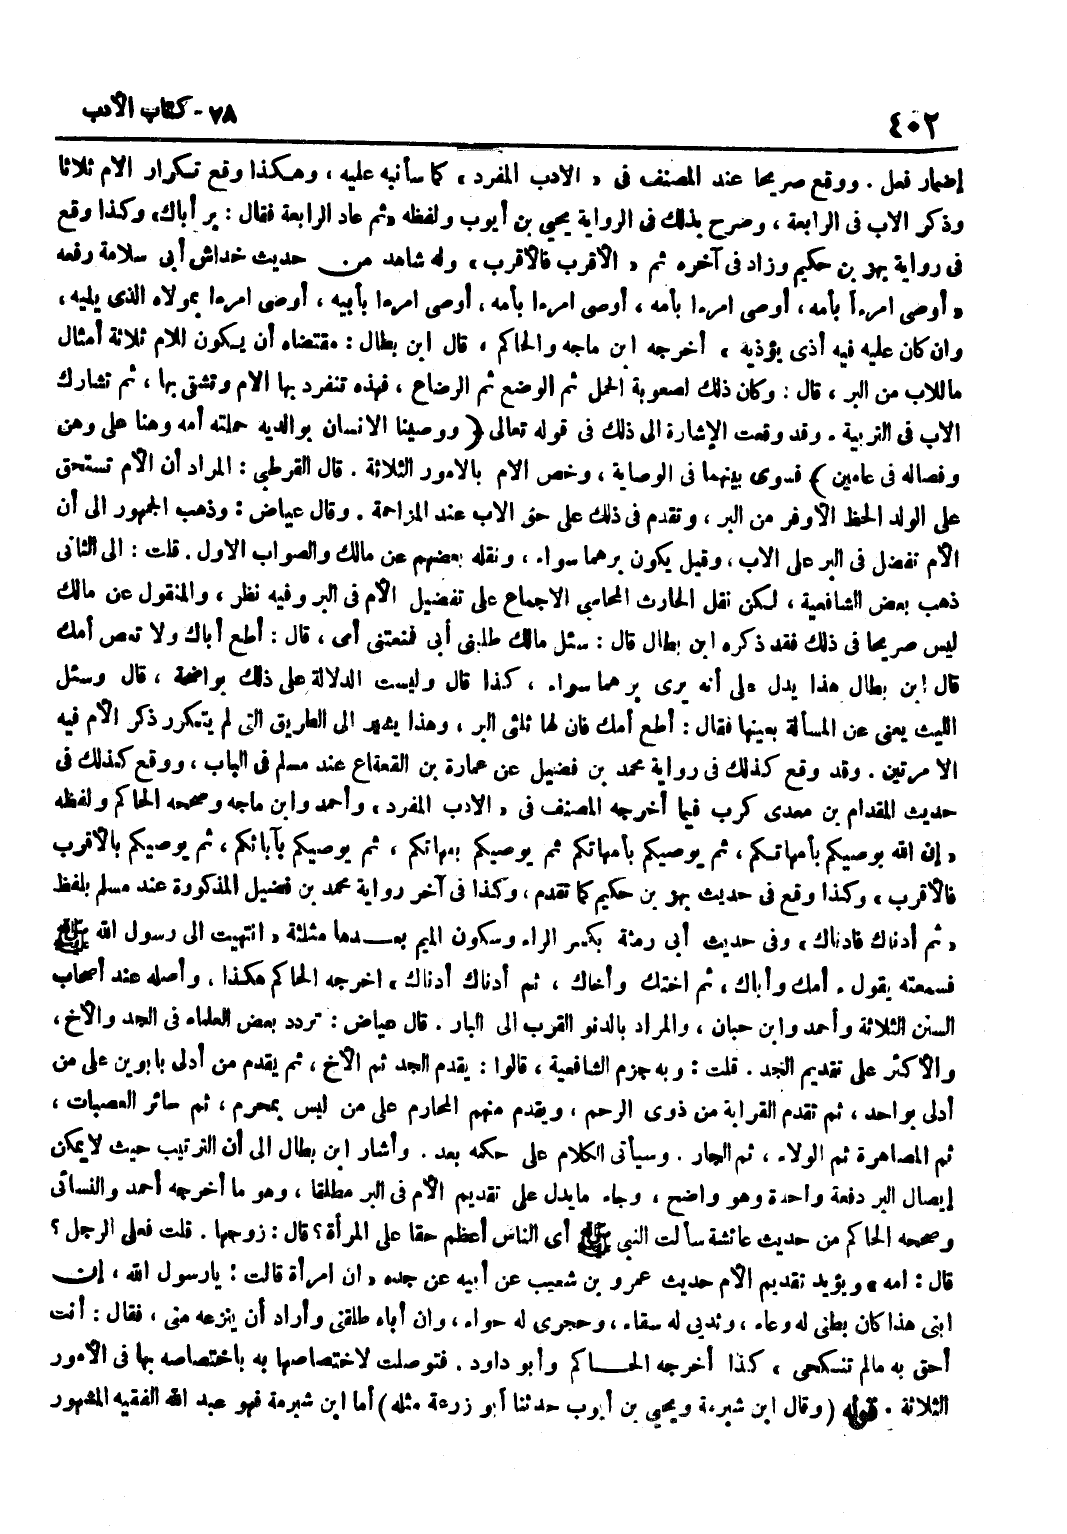 ٤٠٢
٧٨ - كتاب الأدب
إضمار فعل . ووقع صريحا عند المصنف فى « الادب المفرد » كما سأنبه عليه ، وهكذا وقع تكرار الام ثلاثا
وذكر الاب فى الرابعة ، وصرح بذلك فى الرواية يحيى بن أيوب ولفظه « ثم عاد الرابعة فقال : بر أباك » وكذا وقع
فى رواية بهز بن حكيم وزاد فى آخره ثم « الأقرب فالأقرب » وله شاهد من حديث خداش أبى سلامة رفعه
« أوصى امرءاً بأمه ، أوصى امرءا بأمه ، أوصى امرءا بأمه ، أوصى امرءا بأبيه ، أوصى امرءا بمولاه الذى يليه ،
وان كان عليه فيه أذى يؤذيه » أخرجه ابن ماجه والحاكم ، قال ابن بطال : مقتضاه أن يكون للام ثلاثة أمثال
ما للاب من البر ، قال : وكان ذلك لصعوبة الحمل ثم الوضع ثم الرضاع ، فهذه تنفرد بها الام وتشقى بها ، ثم تشارك
الاب فى التربية . وقد وقعت الإشارة الى ذلك فى قوله تعالى ﴿ ووصينا الانسان بوالديه حملته أمه وهنا على وهن
وفصاله فى عامين ﴾ فسوى بينهما فى الوصاية ، وخص الام بالامور الثلاثة . قال القرطبى : المراد أن الأم تستحق
على الولد الحظ الأوفر من البر ، وتقدم فى ذلك على حق الاب عند المزاحمة . وقال عياض : وذهب الجمهور الى أن
الأم تفضل فى البر على الاب ، وقيل يكون برهما سواء ، ونقله بعضهم عن مالك والصواب الاول . قلت : الى الثانى
ذهب بعض الشافعية ، لكن نقل الحارث المحاسبى الاجماع على تفضيل الأم فى البر وفيه نظر ، والمنقول عن مالك
ليس صريحا فى ذلك فقد ذكره ابن بطال قال : سئل مالك طلبنى أبى فمنعتنى أمى ، قال : أطع أباك ولا تعص أمك
قال ابن بطال هذا يدل على أنه يرى برهما سواء ، كذا قال وليست الدلالة على ذلك بواضحة ، قال وسئل
الليث يعنى عن المسألة بعينها فقال : أطع أمك فان لها ثلثى البر ، وهذا يشهد الى الطريق التى لم يتكرر ذكر الأم فيه
الا مرتين . وقد وقع كذلك فى رواية محمد بن فضيل عن عمارة بن القعقاع عند مسلم فى الباب ، ووقع كذلك فى
حديث المقدام بن معدى كرب فيما أخرجه المصنف فى « الادب المفرد » وأحمد وابن ماجه وصححه الحاكم ولفظه
« إن الله يوصيكم بأمهاتكم ، ثم يوصيكم بأمهاتكم ثم يوصيكم بمهاتكم ، ثم يوصيكم بآبائكم ، ثم يوصيكم بالأقرب
فالأقرب » وكذا وقع فى حديث بهز بن حكيم كما تقدم ، وكذا فى آخر رواية محمد بن فضيل المذكورة عند مسلم بلفظ
« ثم أدناك فادناك » وفى حديث أبى رمثة بكسر الراء وسكون الميم بعدها مثلثة « انتهيت الى رسول الله ﷺ
فسمعته يقول . أمك وأباك ، ثم اختك وأخاك ، ثم أدناك أدناك » اخرجه الحاكم هكذا ، وأصله عند أصحاب
السنن الثلاثة وأحمد وابن حبان ، والمراد بالدنو القرب الى البار . قال عياض : تردد بعض العلماء فى الجد والأخ ،
والأكثر على تقديم الجد . قلت : وبه جزم الشافعية ، قالوا : يقدم الجد ثم الأخ ، ثم يقدم من أدلى بابوين على من
أدلى بواحد ، ثم تقدم القرابة من ذوى الرحم ، ويقدم منهم المحارم على من ليس بمحرم ، ثم سائر العصبات ،
ثم المصاهرة ثم الولاء ، ثم الجار . وسيأتى الكلام على حكمه بعد . وأشار ابن بطال الى أن الترتيب حيث لا يمكن
إيصال البر دفعة واحدة وهو واضح ، وجاء ما يدل على تقديم الأم فى البر مطلقا ، وهو ما أخرجه أحمد والنسائى
وصححه الحاكم من حديث عائشة سألت النبى ﷺ أى الناس أعظم حقا على المرأة ؟ قال : زوجها . قلت فعلى الرجل ؟
قال : امه » ويؤيد تقديم الأم حديث عمرو بن شعيب عن أبيه عن جده « ان امرأة قالت : يا رسول الله ، إن
ابنى هذا كان بطنى له وعاء ، وثديى له سقاء ، وحجرى له حواء ، وان أباه طلقنى وأراد أن ينزعه منى ، فقال : أنت
أحق به مالم تنكحى ، كذا أخرجه الحاكم وأبو داود . فتوصلت لاختصاصها به باختصاصه بها فى الأمور
الثلاثة . قوله ( وقال ابن شبرمة ويحيى بن أيوب حدثنا أبو زرعة مثله ) أما ابن شبرمة فهو عبد الله الفقيه المشهور